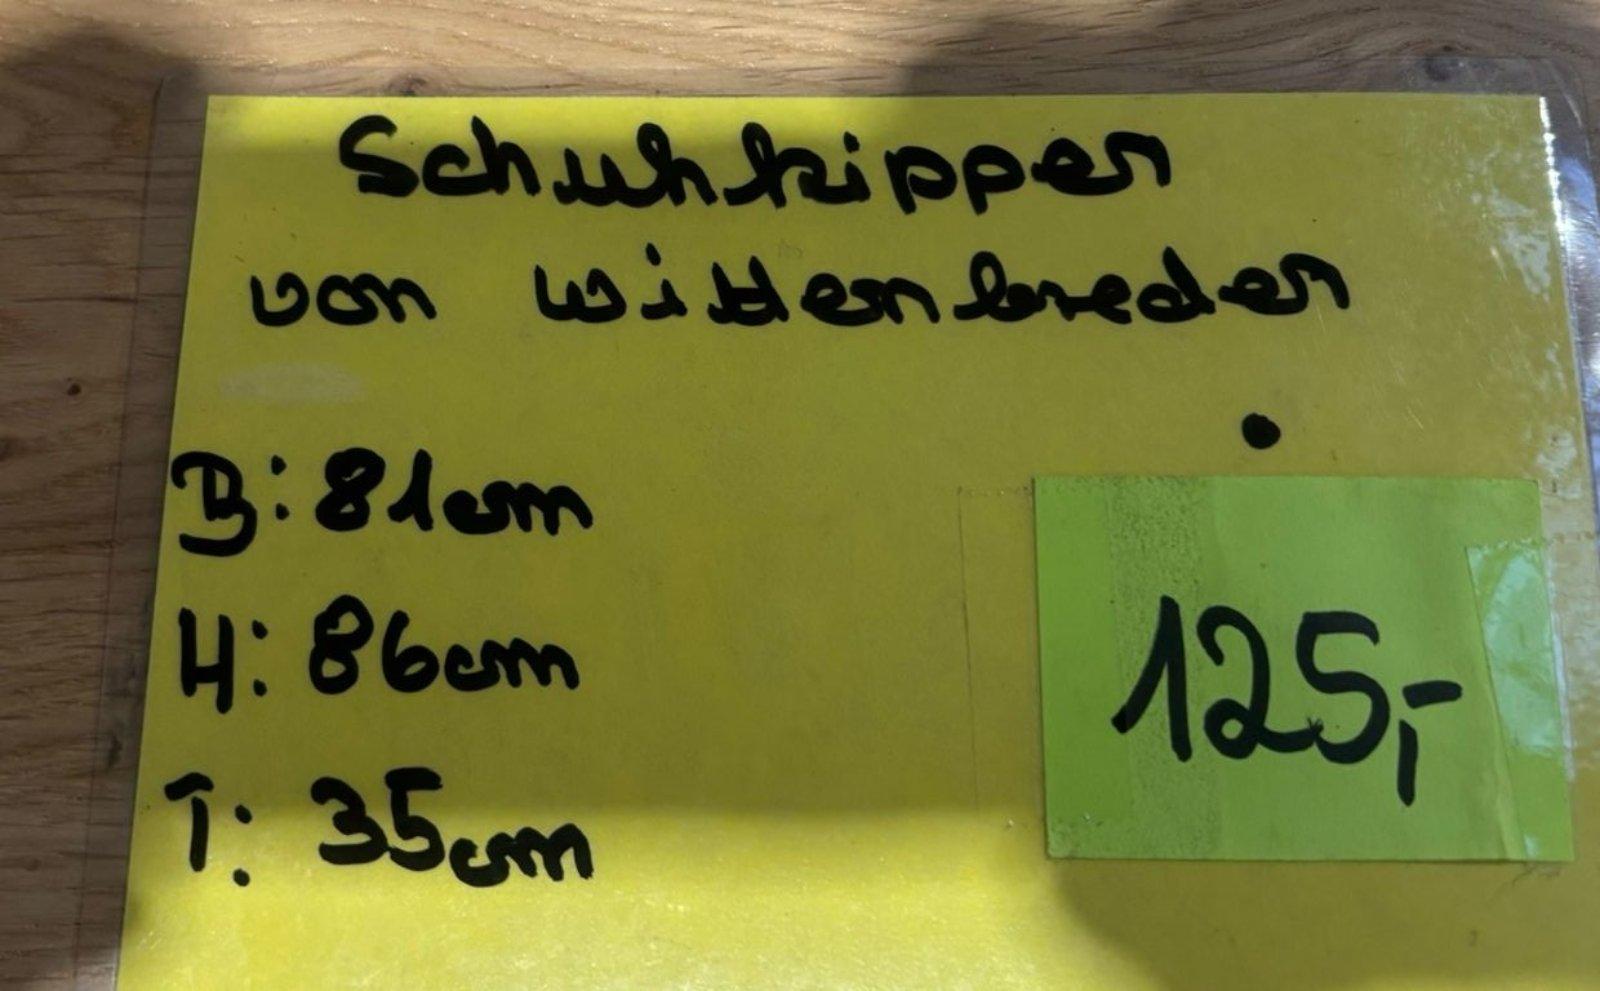 Schuhkipper
von Wittenbreder
B: 81cm
H: 86cm
T: 35cm
125,-